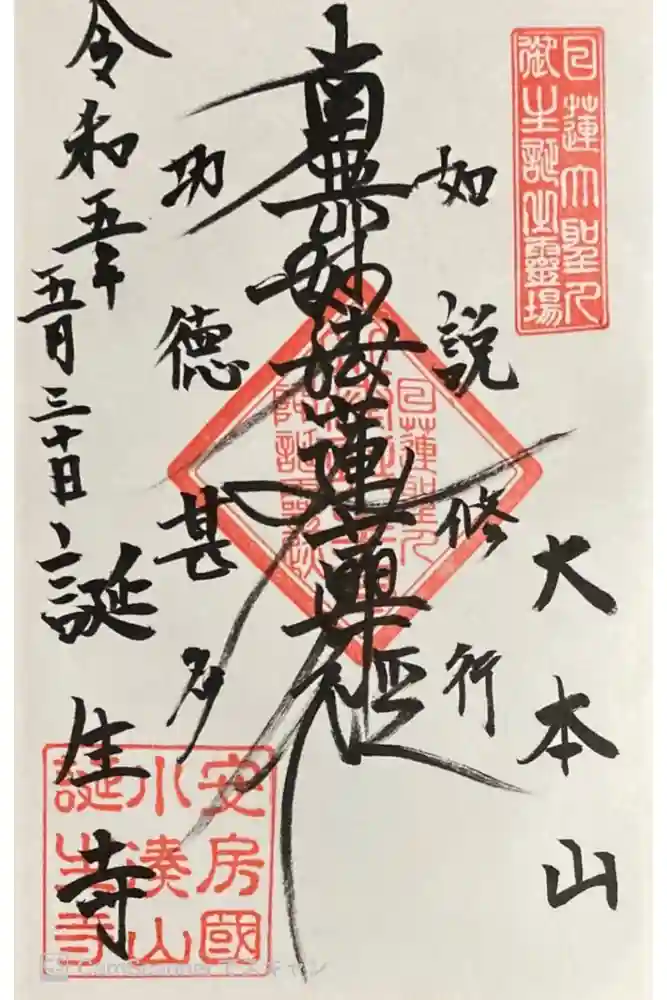 日蓮大聖人
御生誕之靈場
大本山
如説修行
南無妙法蓮華経
功徳甚多
令和五年
五月三十日
誕生寺
日蓮聖人
安房國
小湊山
誕生寺
CamScannerでスキャン